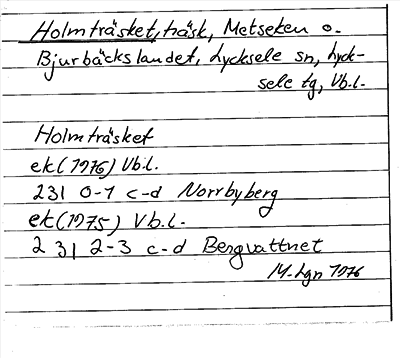 Holmträsket, träsk, Metseken o.
Bjurbäckslandet, Lycksele sn, Lyck-
sele tg, Vb.l.
Holmträsket
ek (1976) Vb.l.
231 0-1 c-d Norrbyberg
ek (1975) Vb.l.
231 2-3 c-d Bergvattnet
M-Lgn 1976